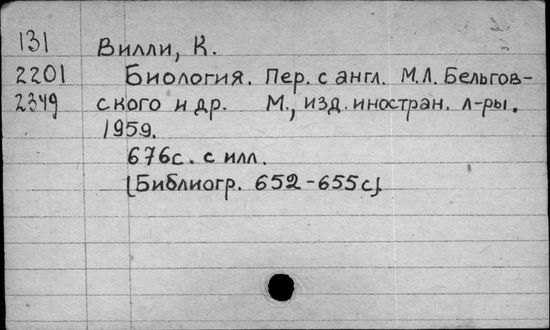 131 Вилли, К.
2201 Биология. Пер. с англ. М.Л. Бельгов-
2349 ского и др. М., изд. иностран. л-ры.
1959.
676с. с илл.
[Библиогр. 652-655с]